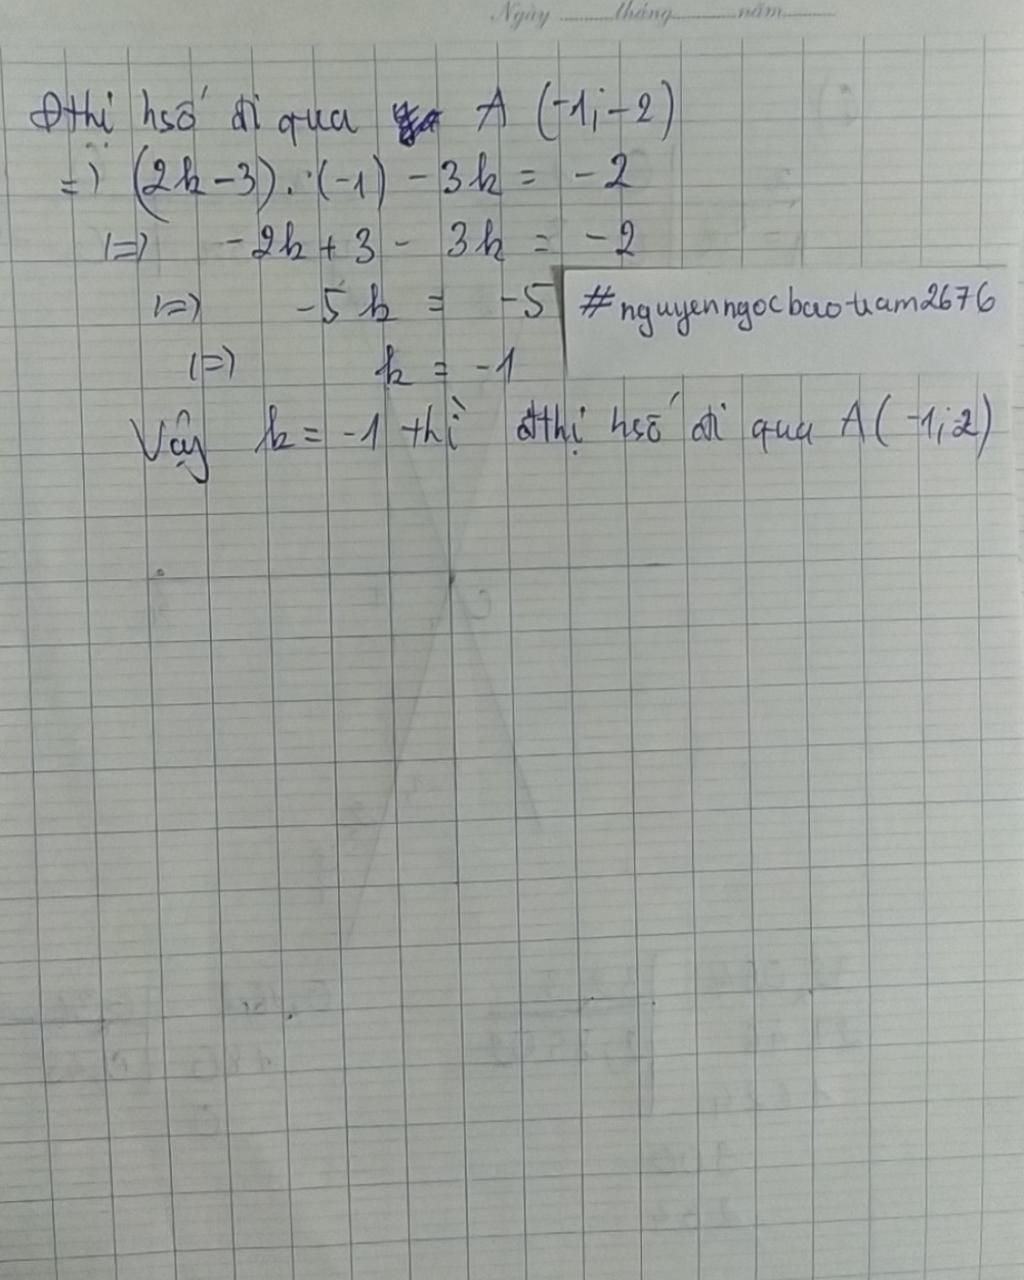 Ngày ........ tháng ........ năm ........
Đthị hsố đi qua A (-1; -2)
=) (2k-3).(-1) - 3k = -2
(=) -2k + 3 - 3k = -2
(=) -5 k = -5
#nguyenngocbaotram2676
(=) k = -1
Vậy k = -1 thì đthị hsố đi qua A( -1; 2)